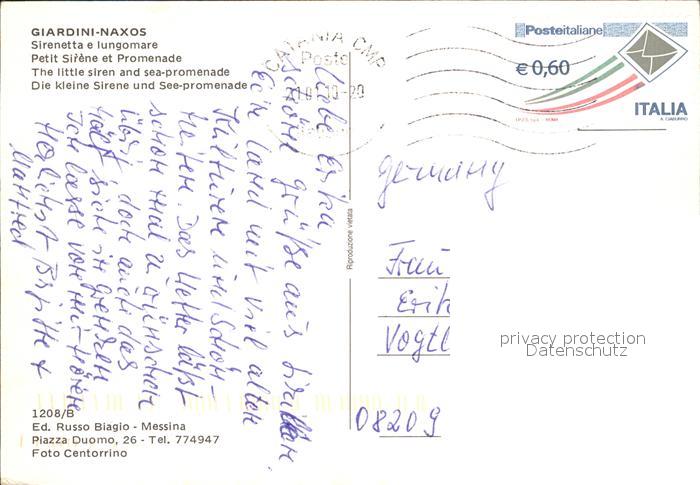 GIARDINI-NAXOS
Sirenetta e lungomare
Petit Sirène et Promenade
The little siren and sea-promenade
Die kleine Sirene und See-promenade
CATANIA CMP
Poste
Posteitaliane
€ 0,60
ITALIA
Liebe Erika
schöne Grüße aus Sizilien.
Ein Land mit viel alten
Kulturen und Schön-
heiten. Das Wetter läßt
schon mal zu wünschen
übrig doch auch das
hält sich in Grenzen
Ich lasse von mir hören
Herzlichst Brigitte +
Manfred
Riproduzione vietata
Germany
Frau
Erik
Vogtl
08209
privacy protection
Datenschutz
1208/B
Ed. Russo Biagio - Messina
Piazza Duomo, 26 - Tel. 774947
Foto Centorrino